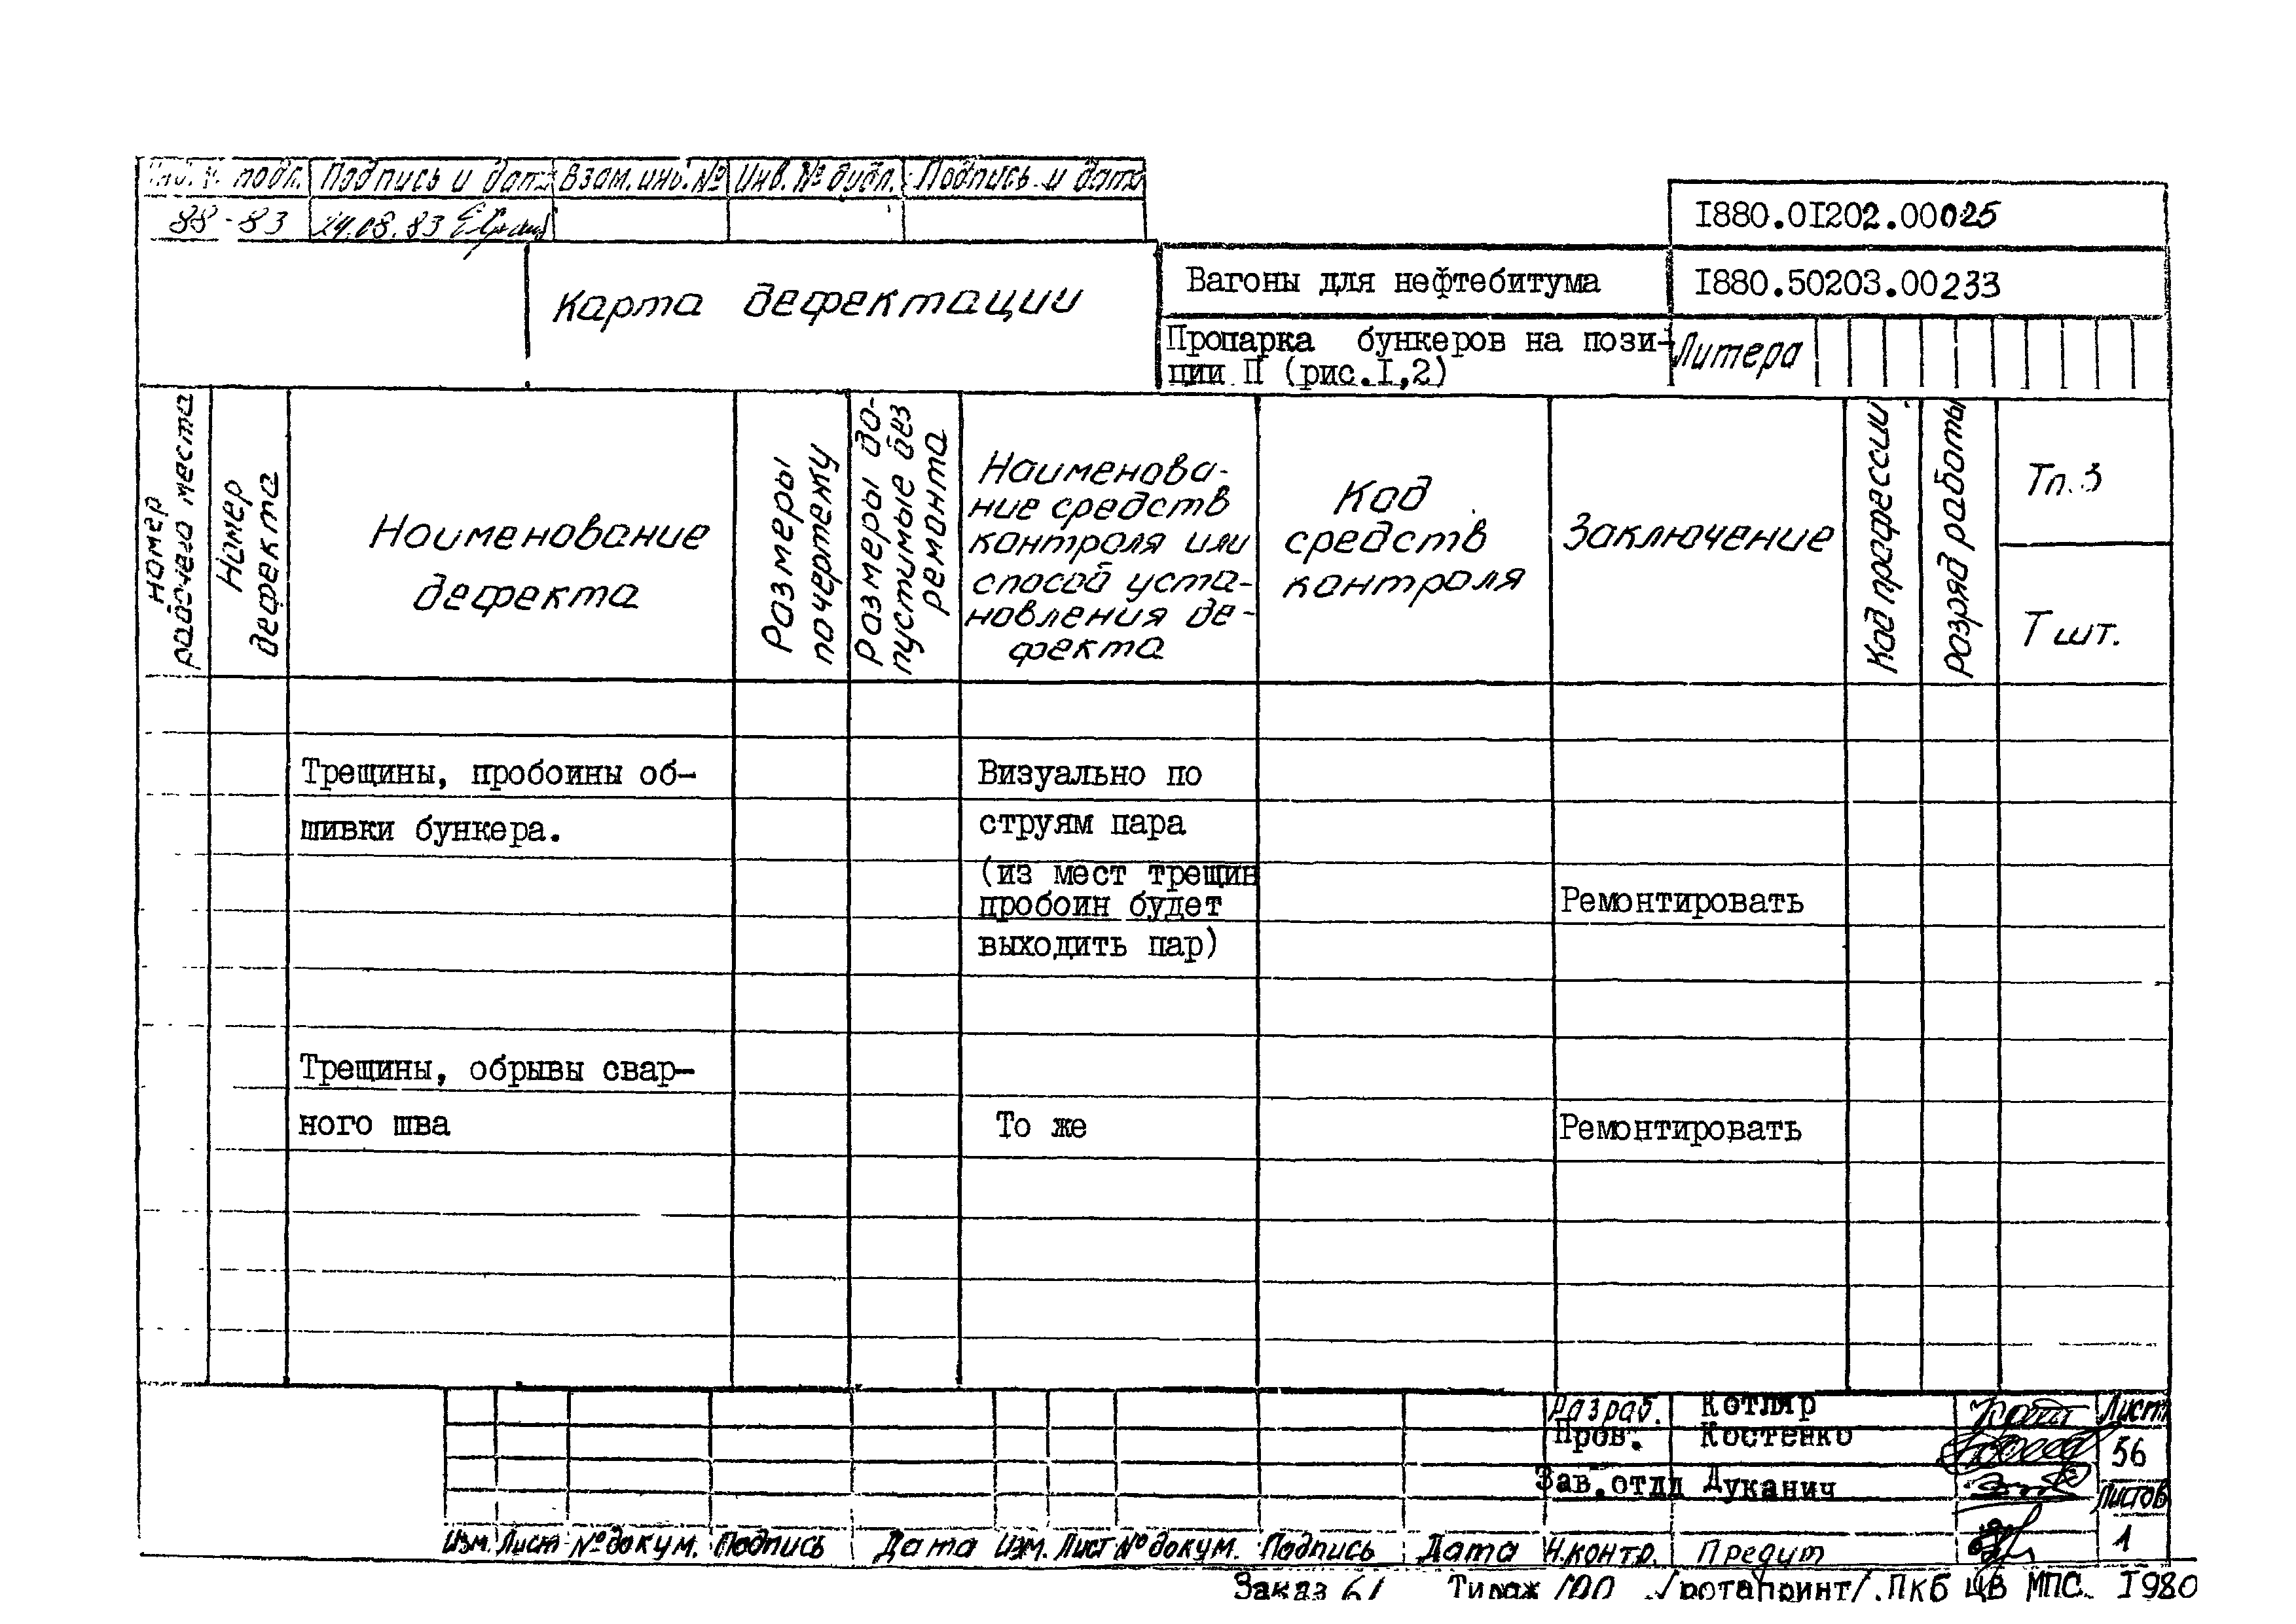 подл. Подпись и дата Взам. инв. № Инв. № дубл. Подпись и дата
88-83 29.08.83
I880.0I202.00025
Карта дефектации
Вагоны для нефтебитума
I880.50203.00233
Пропарка бункеров на пози-
ции П (рис.I,2)
Литера
Номер
рабочего места
Номер
дефекта
Наименование
дефекта
Размеры
по чертежу
Размеры до-
пустимые без
ремонта
Наименова-
ние средств
контроля или
способ уста-
новления де-
фекта
Код
средств
контроля
Заключение
Код профессии
Разряд работы
Тп.з
Т шт.
Трещины, пробоины об-
шивки бункера.
Визуально по
струям пара
(из мест трещин
пробоин будет
выходить пар)
Ремонтировать
Трещины, обрывы свар-
ного шва
То же
Ремонтировать
Разраб. Котляр
Лист
Пров. Костенко
56
Зав.отдл Дуканич
Листов
Изм. Лист № докум. Подпись Дата Изм. Лист № докум. Подпись Дата Н.контр. Предит
1
Заказ 61 Тираж 100 /ротапринт/. ПКБ ЦВ МПС. I980